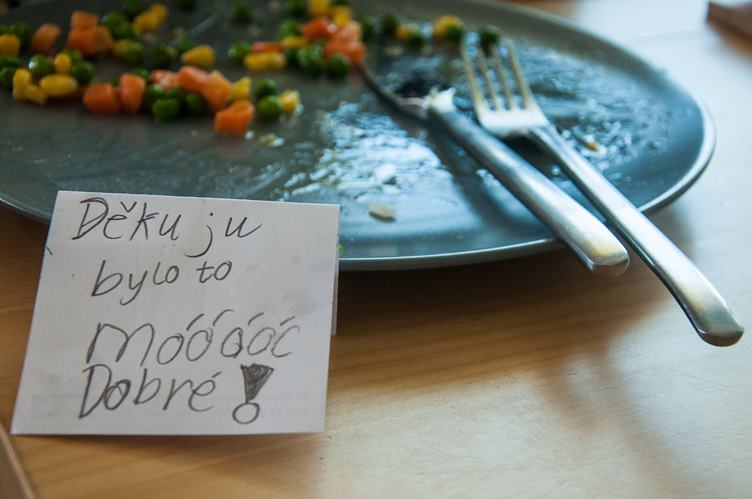 Děkuju
bylo to
móóóóć
Dobré!